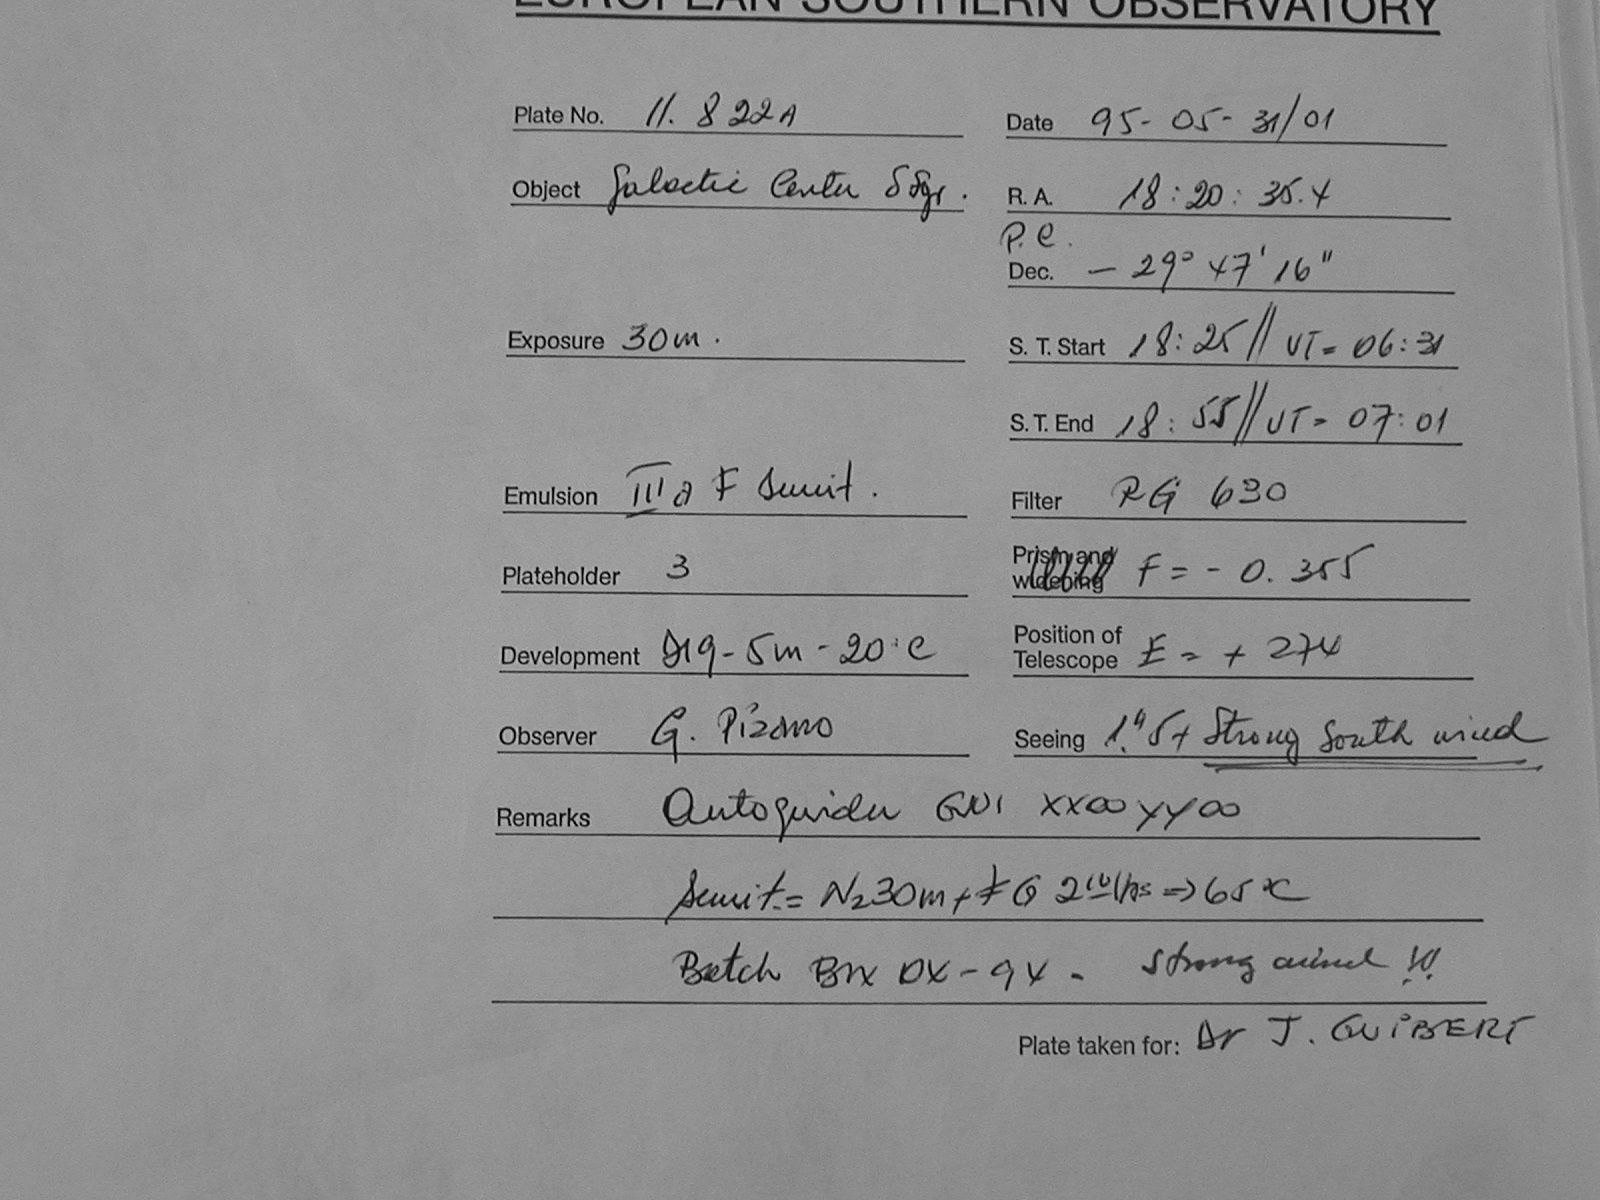 EUROPEAN SOUTHERN OBSERVATORY
Plate No. 11.822A
Date 95-05-31/01
Object Galactic Center δ Sgr.
R.A. 18:20:35.4
P.C.
Dec. -29° 47' 16"
Exposure 30m.
S. T. Start 18:25 // UT= 06:31
S. T. End 18:55 // UT= 07:01
Emulsion IIIa F Sensit.
Filter RG 630
Plateholder 3
Prism and widening F = - 0.355
Development D19-5m-20°C
Position of Telescope E = + 274
Observer G. Pizarro
Seeing 1."5+ Strong South wind
Remarks Autoguider XX00 YY00
Sensit.= N2 30m + FG => 65°C
Batch Strong wind !!!
Plate taken for: Dr J. GUIBERT